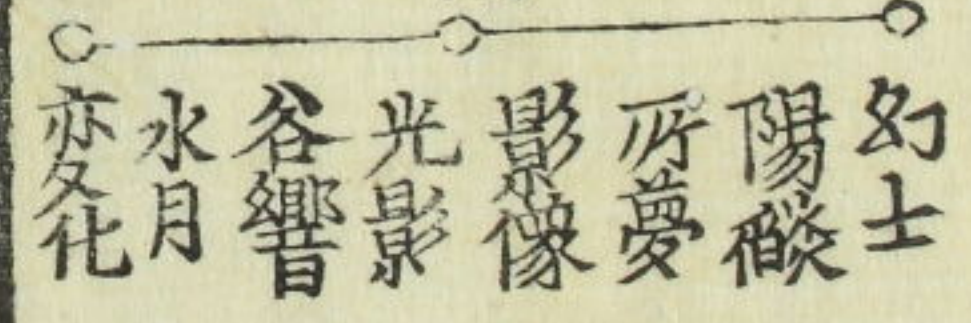 幻士
陽燄
所夢
影像
光影
谷響
水月
变化